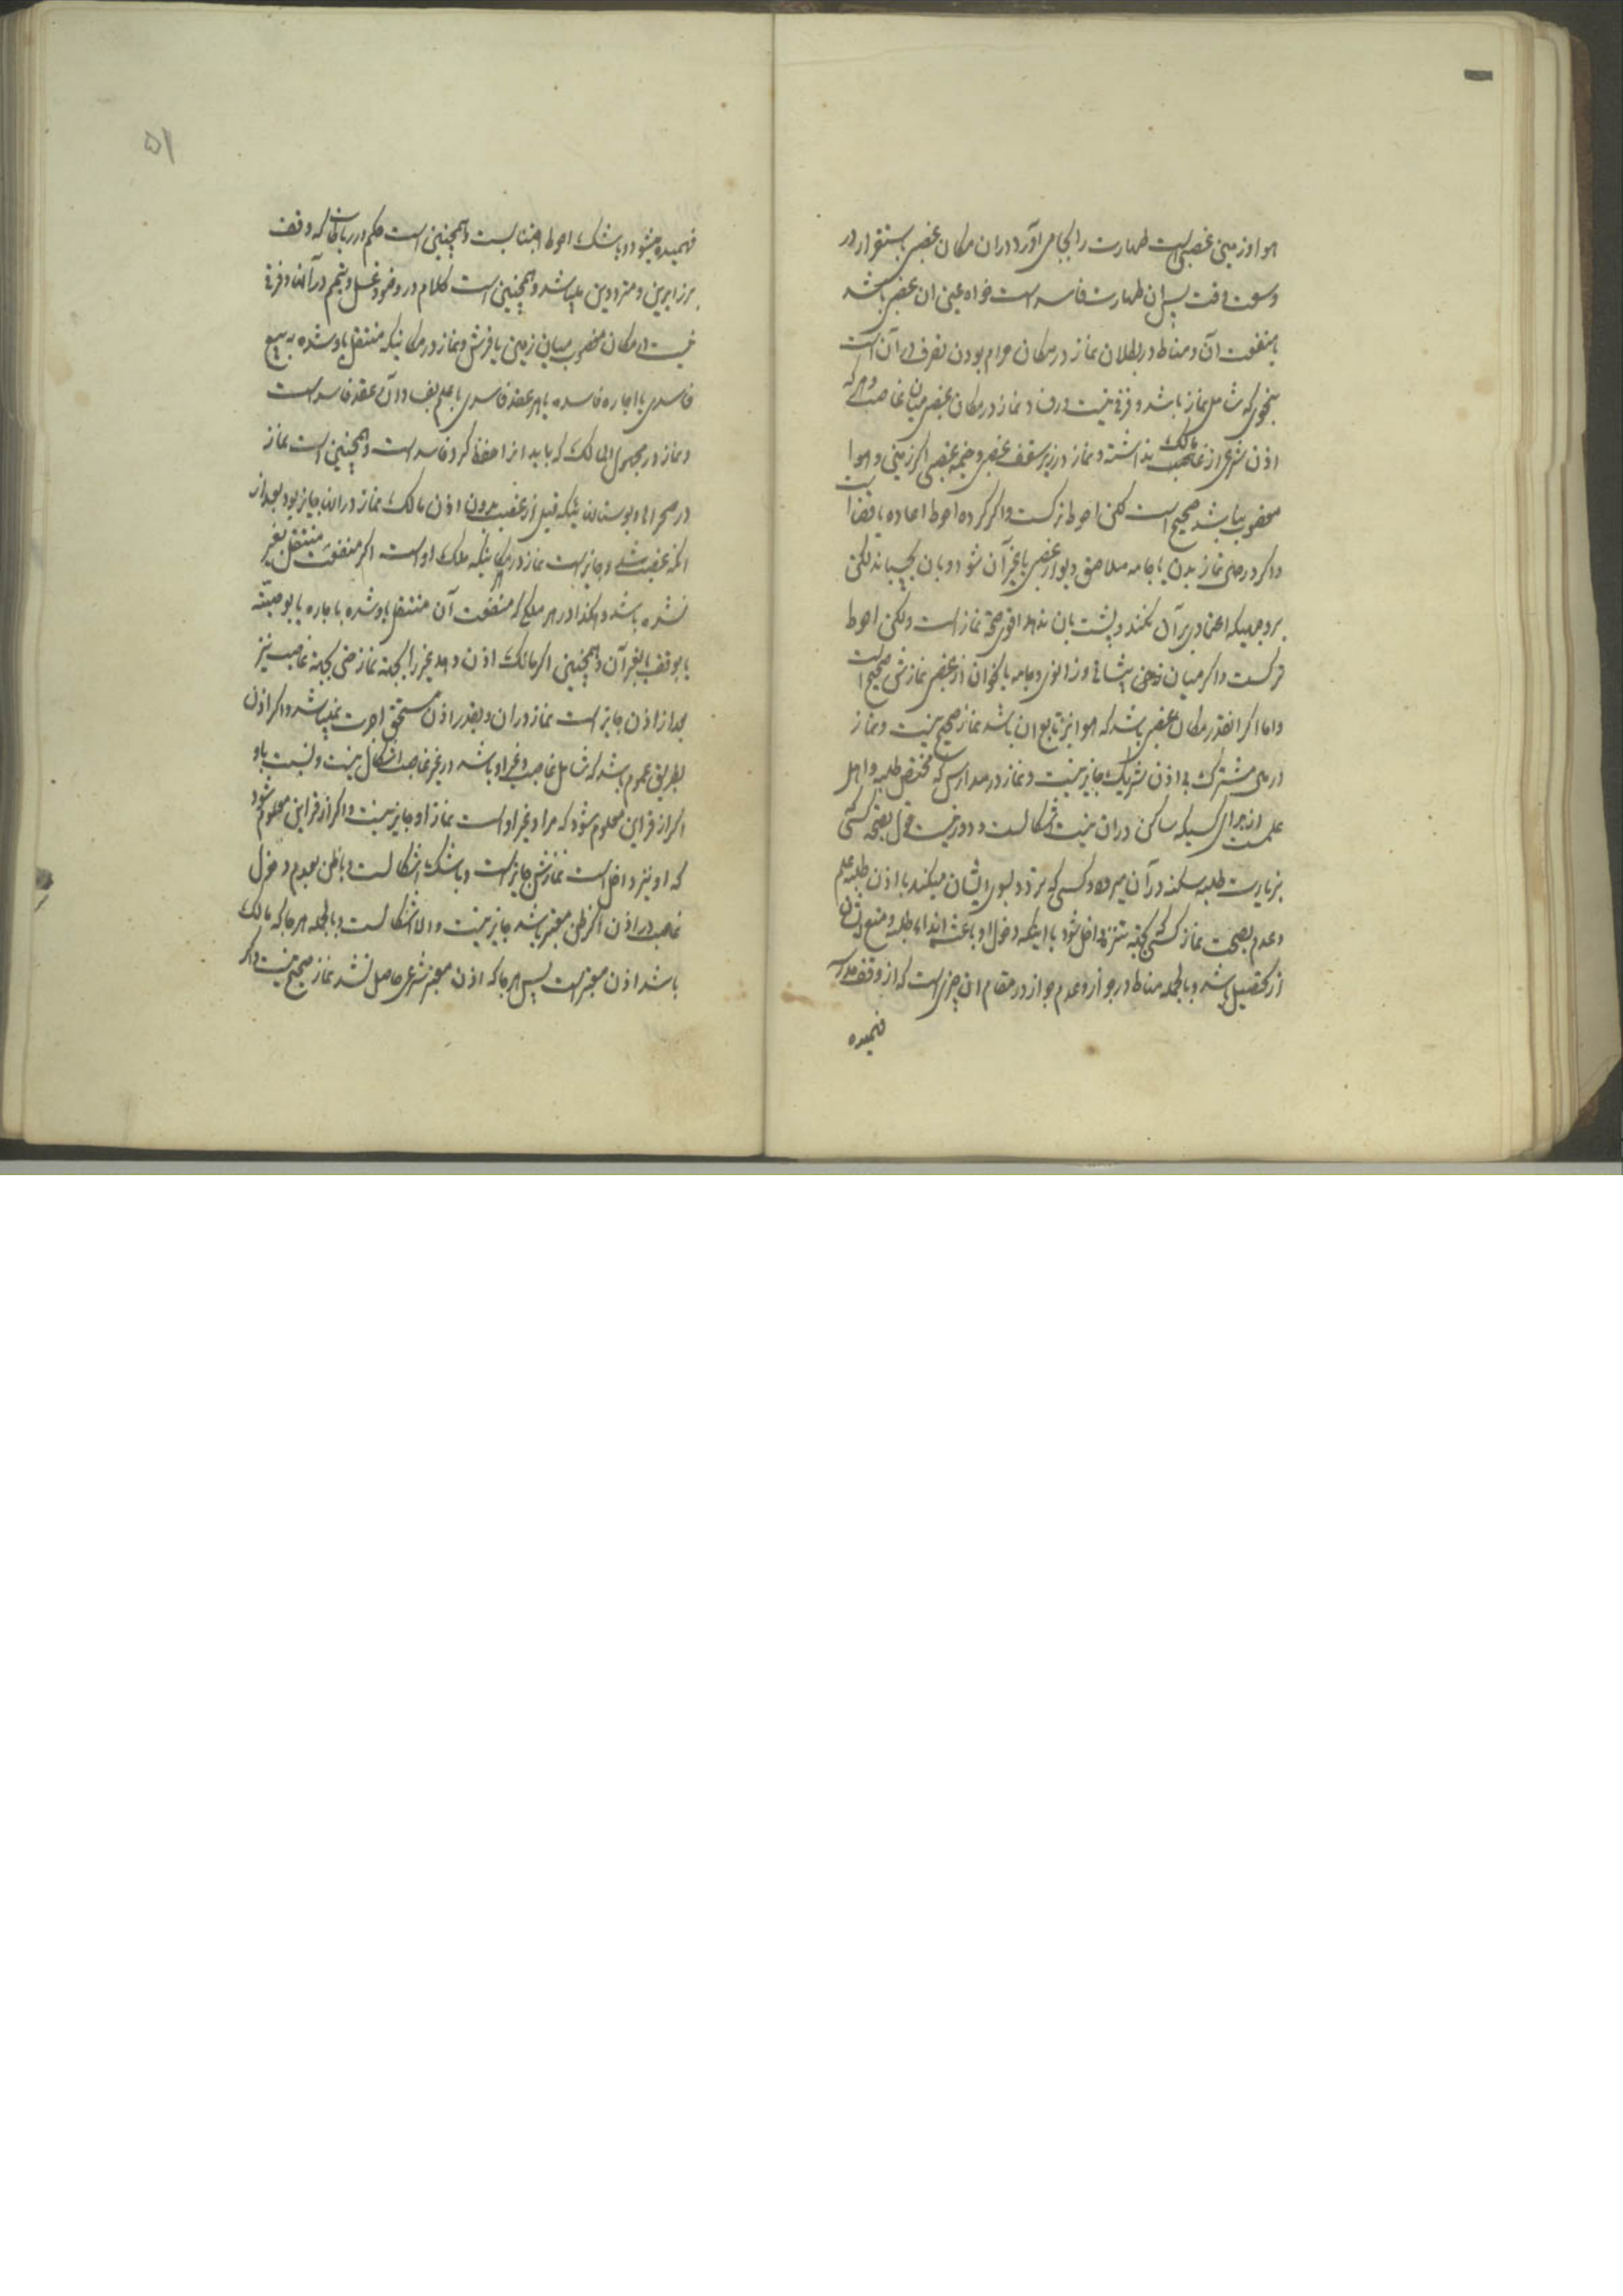 هوا و زمین غصبی است طهارت را بجا می آورد و در ان مکان غصبی باستقرار در
وسعت وقت پس ان طهارت فاسد است خواه عین ان غصبی باشد
یا منفعت آن و مناط در بطلان نماز در مکان حرام بودن تصرف در آن است
بنحوی که شامل نماز باشد و فرقی نیست در فساد نماز در مکان غصبی میان غاصب و هر که
اذن شرعی از مالک نداشته و نماز در زیر سقف غصبی و خیمه غصبی اگر زمین و هوا
مغصوب نباشد صحیح است لکن احوط ترکست و اگر کرده احوط اعاده یا قضا است
و اگر در حین نماز بدن یا جامه ملاصق دیوار غصبی یا غیر آن شود و بان بچسباند لکن
بر وجهیکه اعتماد بر آن نکند و پشت بان ندهد اقوی صحة نماز است ولکن احوط
ترکست و اگر میان پیشانی و زانوی و جامه یا نحو ان از غصبی نمازش صحیح است
و اما اگر انقدر مکان غصبی باشد که هوا نیز تابع ان باشد نماز صحیح نیست و نماز
در ملک مشترک بی اذن شریک جایز نیست و نماز در مدارس که مختص طلبه و اهل
علمست از برای کسیکه ساکن در ان نیست مشکل است و دور نیست قول بصحة کسی
بزیارت طلبه سکنه در آن میرود و کسی که تردد بسوی ایشان میکند با اذن طلبه علم
و عدم بصحت نماز کسی که بجهة تنزه داخل شود با اینکه دخول او باعث ایذاء طلبه و منع ایشان
از تحصیل باشد و بالجمله مناط در جواز و عدم جواز در مقام ان چیزی است که از وقف مدرسه
فهمیده
۵۱
فهمیده میشود و با شک احوط اجتنابست و همچنین است حکم در رباطات که وقف
بر زایرین و مترددین میباشد و همچنین است کلام در وضو و غسل و تیمم در آنها و فرقی
نیست در مکان مغصوب میان زمین یا فرش و نماز در مکانیکه منتقل باو شده به بیع
فاسدی یا اجاره فاسده یا هر عقد فاسدی با علم بفساد آن عقد فاسد است
و نماز در مجهول المالک که باید انرا حفظ کرد فاسد است و همچنین است نماز
در صحراها و بوستانهائیکه قبل از غصب بدون اذن مالک نماز در انها جایز بود بعد از
انکه غصب شد و جایز است نماز در مکانیکه ملک او است اگر منفعت منتقل بغیر
نشده باشد و هکذا در هر ملکی که منفعت آن منتقل باو شده باجاره یا بوصیته
یا بوقف یا بغیر آن و همچنین اگر مالک اذن دهد غیر را بجهة نماز حتی بجهة غاصب نیز
بعد از اذن جایز است نماز در ان و بقدر اذن مستحق اجرت نمیباشد و اگر اذن
بطریق عموم باشد که شامل غاصب و غیر او باشد در غیر غاصب اشکال نیست و نسبت باو
اگر از قراین معلوم شود که مراد غیر او است نماز او جایز نیست و اگر از قراین معلوم شود
که او نیز داخل است نمازش جایز است و با شک اشکالست و با ظن بعدم دخول
غاصب در اذن اگر ظن معتبر باشد جایز نیست و الا اشکالست و بالجمله هر جا که مالک
باشد اذن معتبر است پس هر جا که اذن معتبر شرعی حاصل نشد نماز صحیح نیست و اگر